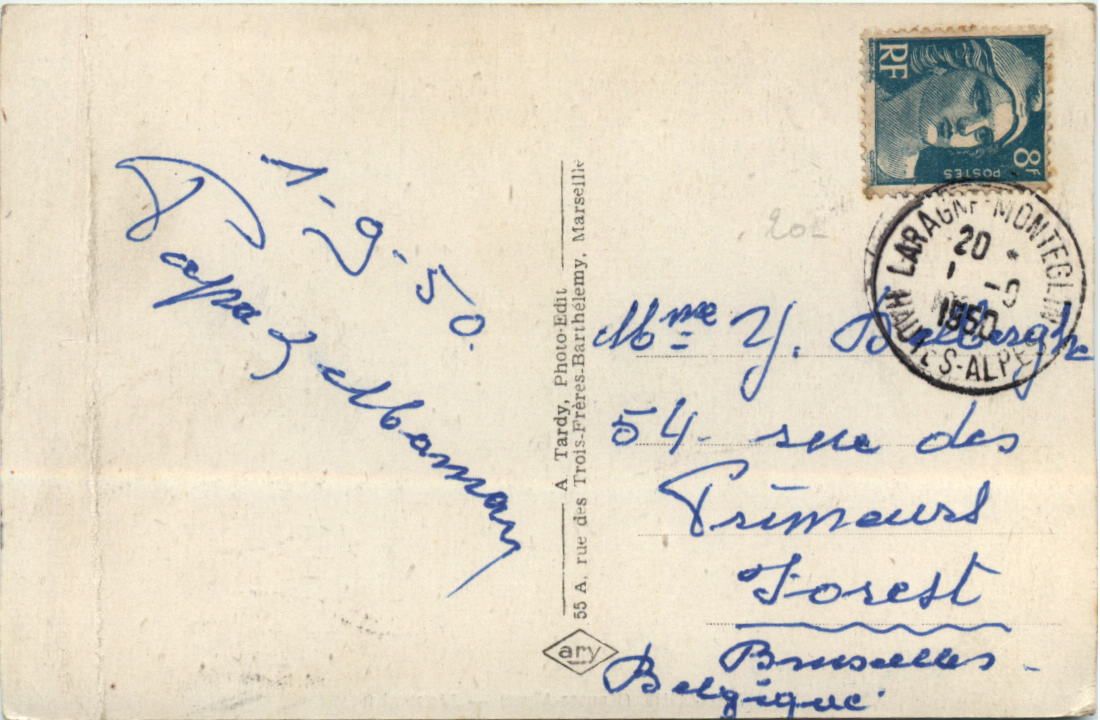 1-9-50.
Papa & Maman
A Tardy, Photo-Edit
55 A, rue des Trois-Frères-Barthélemy, Marseille
ary
RF
8F
POSTES
LARAGNE-MONTEGLIN
20 *
1 -9
1950
HAUTES-ALPES
20
Mme Y.
54 - rue des
Primeurs
Forest
Bruxelles -
Belgique.